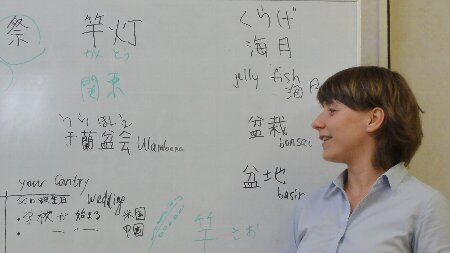 祭 竿灯
かんとう
関東
うらぼんえ
盂蘭盆会 Urabane
your contry
wedding
・学校が始まる 米国
・ 〃 中国
竿 さお
くらげ
海月
jelly fish
海月
盆栽
bonsai
盆地
basin